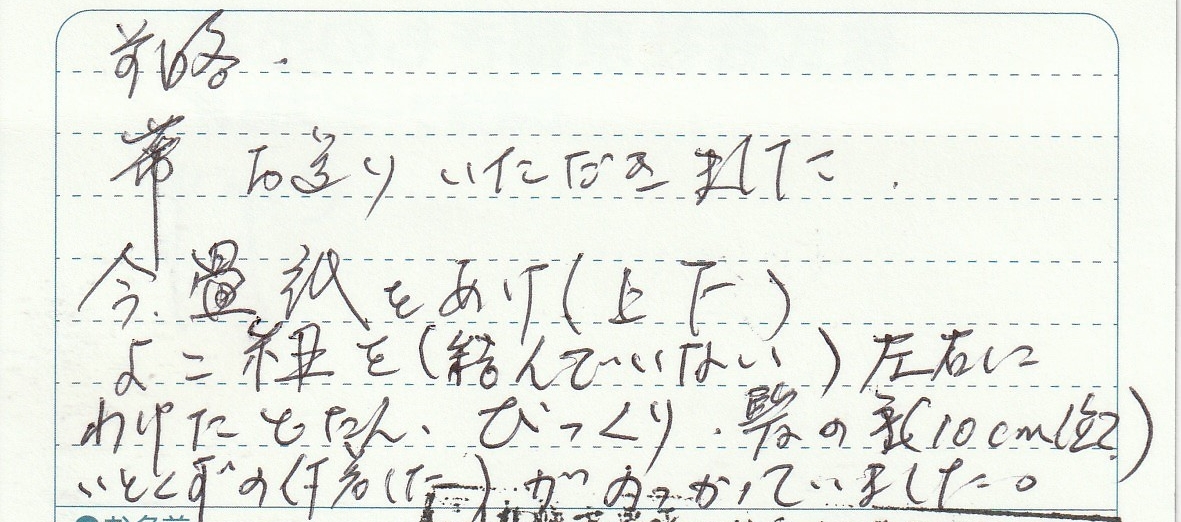 前略.
帯 お送りいただきました.
今、畳紙をあけ(上下)
よこ紐を(結んでいない)左右に
わけたとたん、びっくり.髪の毛(10cm位)
いとくずの(様な) がのっかっていました。
お名前